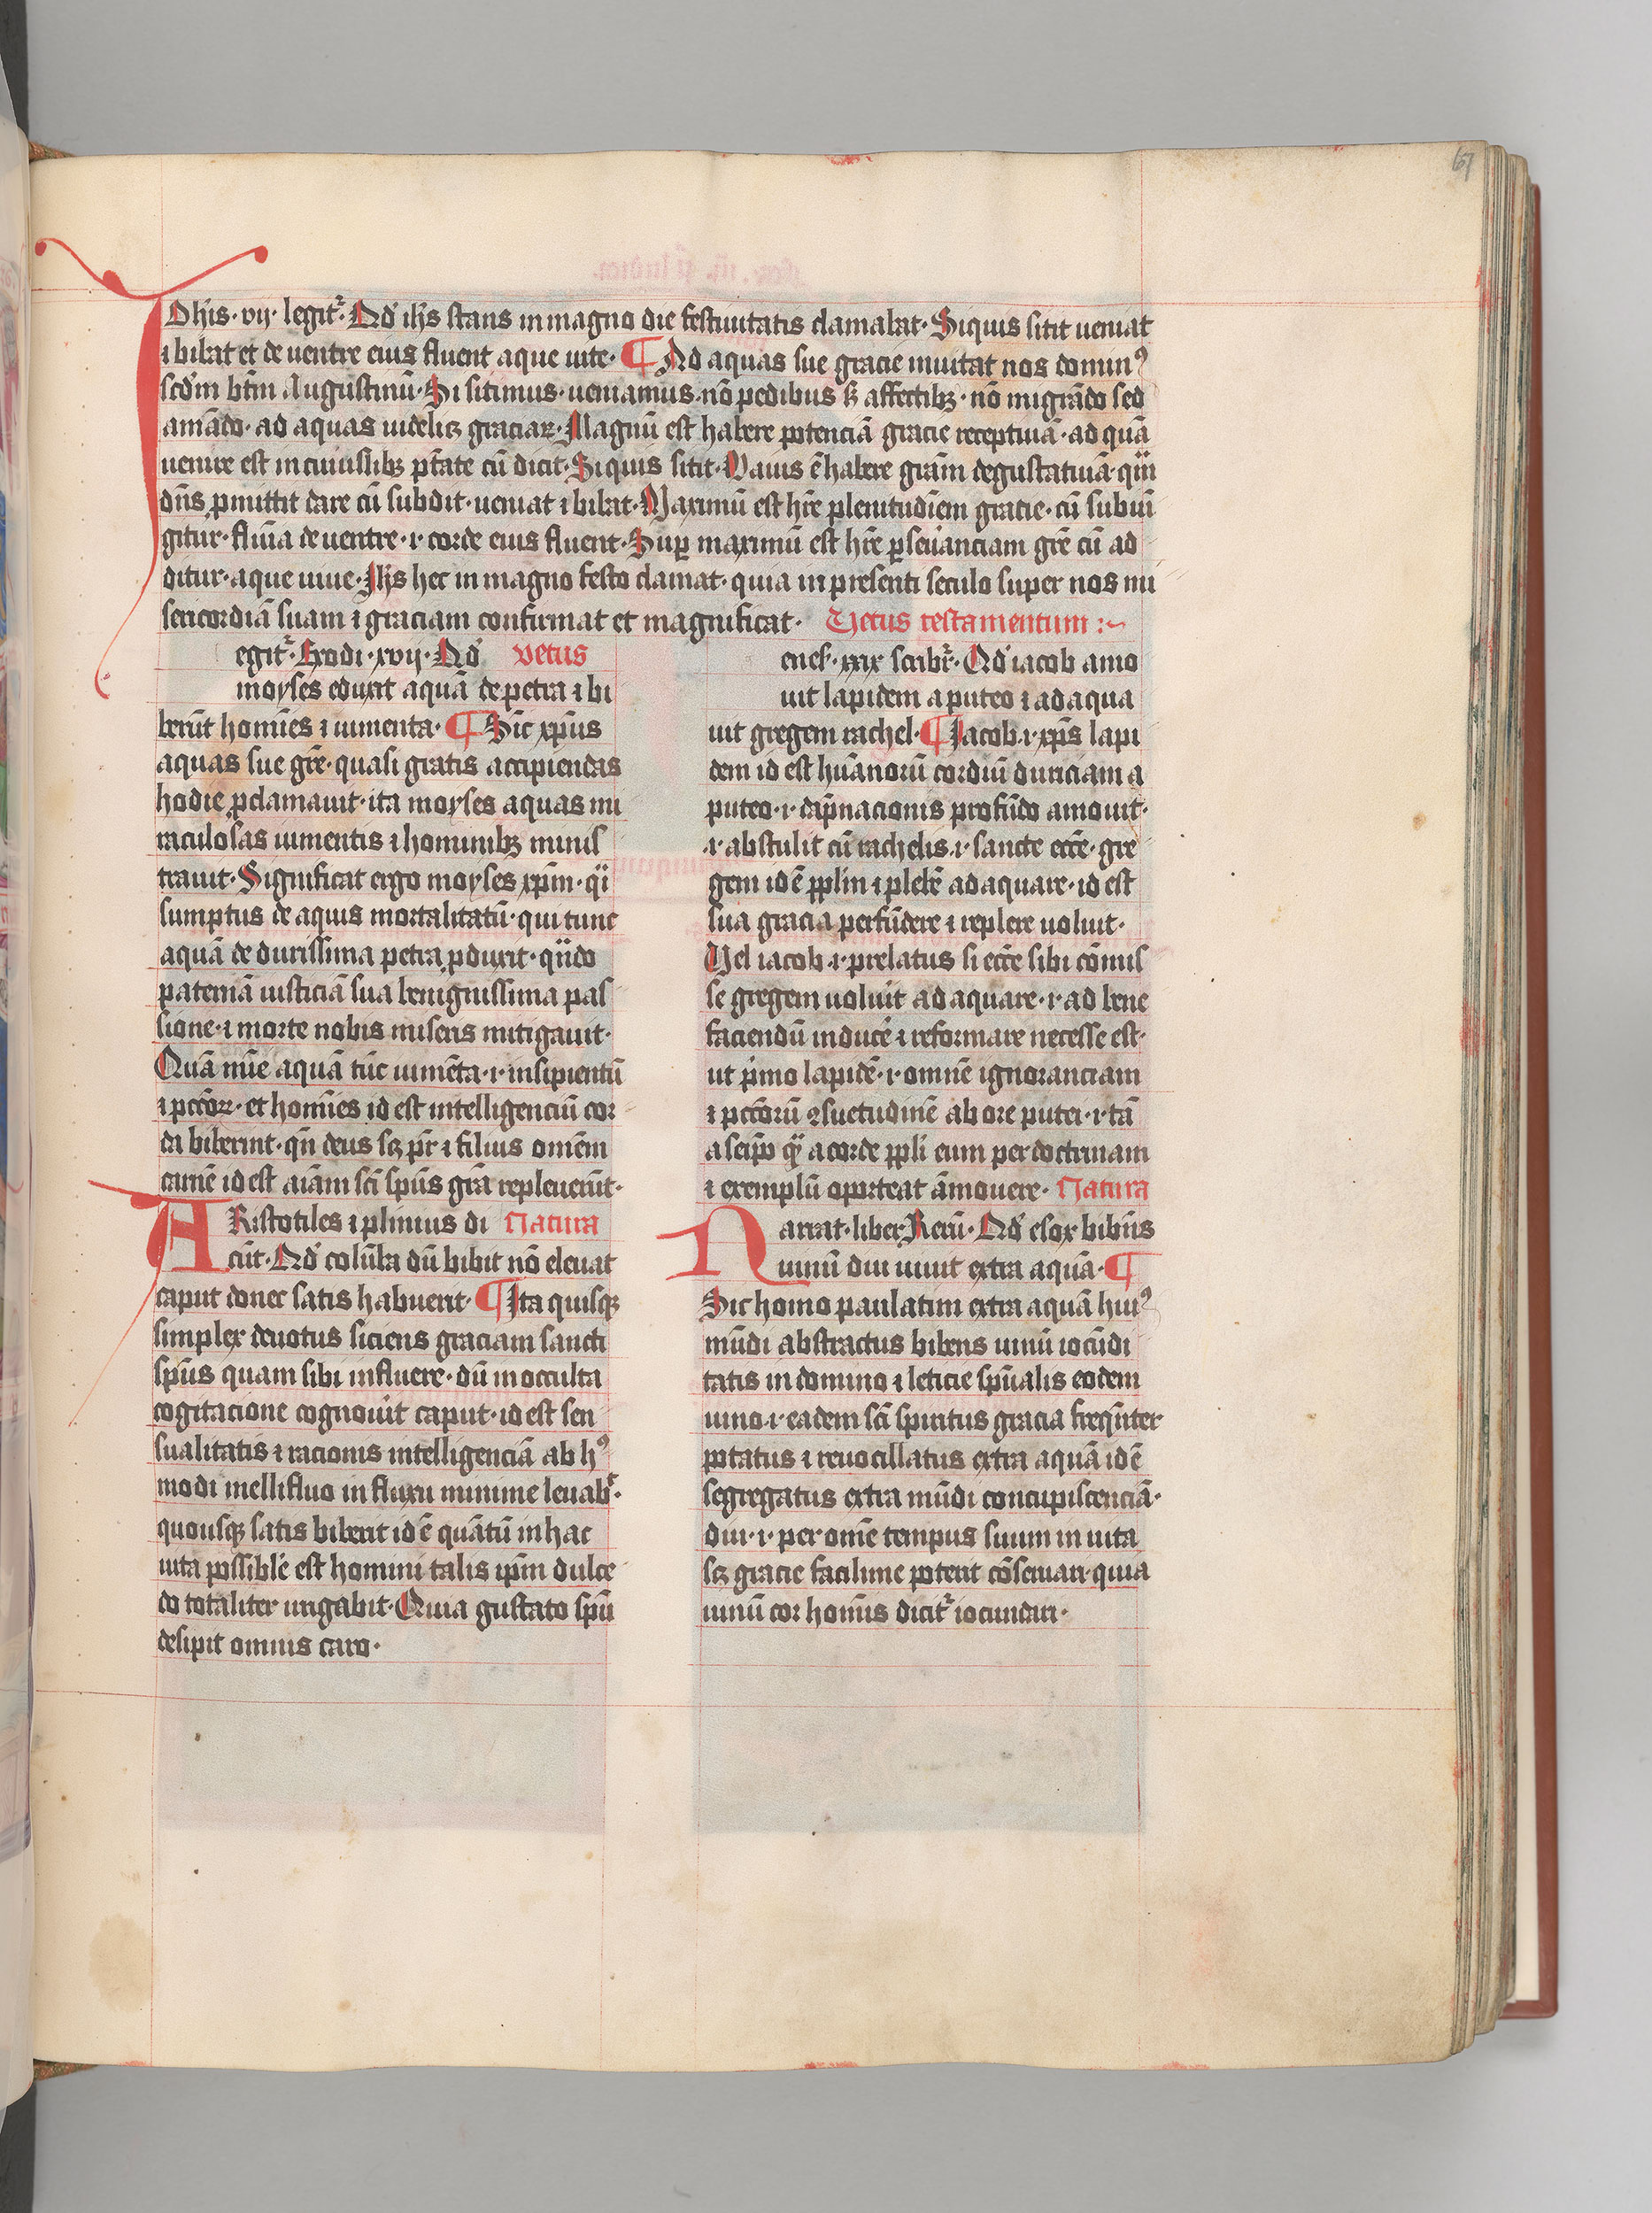 67
IOhis · vij · legit᷑ · Qd́ ihs stans in magno die festiuitatis clamabat · Siquis sitit ueniat
⁊ bibat et de uentre eius fluent aque uite · ¶ Ad aquas sue gracie inuitat nos domin⁹
scdm btm Augustinū · Si sitimus · ueniamus · nō pedibus sꝫ affectibꝫ · nō migrādo sed
amādo · ad aquas uidelicꝫ graciaꝝ · Magnū est habere potenciā gracie receptiuā · ad quā
uenire est in cuiuslibꝫ ptāte cū dicit · Siquis sitit · Maius ē habere grām degustatiuā · quā
dn̄s ꝓmittit dare cū subdit · ueniat ⁊ bibat · Maximū est hr̄e plenitudīem gracie · cū subiū
gitur · flūia de uentre · i · corde eius fluent · Suꝑ maximū est hr̄e ꝑseu̾anciam gr̄e cū ad
ditur · aque uiue · Ihs hec in magno festo clamat · quia in presenti seculo super nos mi
sericordiā suam ⁊ graciam confirmat et magnificat · Vetus testamentum :~
egit᷑ · Exodi · xvij · Qd́ vetus
moyses eduxit aquā de petra ⁊ bi
berūt homīes ⁊ iumenta · ¶ Sic xp̄us
aquas sue gr̄e · quasi gratis accipiendas
hodie ꝓclamauit · ita moyses aquas mi
raculosas iumentis ⁊ hominibꝫ minis
trauit · Significat ergo moyses xp̄m · qi
sumptus de aquis mortalitatū · qui tunc
aquā de durissima petra ꝓduxit · qn̄do
paternā iusticiā sua benignissima pas
sione · ⁊ morte nobis miseris mitigauit ·
Quā nūc aquā tūc iumēta · i · insipientū
⁊ pctōꝝ · et homīes id est intelligenciū cor
da biberint · qn̄ deus scꝫ pr̄ ⁊ filius omēm
carnē id est aīam scī sp̄us grā repleuerūt ·
ARistotiles ⁊ plinius di Natura
cūt · Qd́ colūba dū bibit nō eleuat
caput donec satis habuerit · ¶ Ita quisqꝫ
simplex deuotus siciens graciam sancti
sp̄us quam sibi influere · dū in occulta
cogitacione cognouit caput · id est sen
sualitatis ⁊ racionis intelligenciā ab h⁹
modi mellifluo influxu minime leuab᷑ ·
quousqꝫ satis biberit id ē quātū in hac
uita possible est homini talis ip̄m dulce
do totaliter irrigabit · Quia gustato sp̄u
desipit omnis caro ·
enes · xxix scribr̄ · Qd́ iacob amo
uit lapidem a puteo ⁊ adaqua
uit gregem rachel · ¶ Iacob · i · xp̄s lapi
dem id est hūanorū cordiū duriciam a
puteo · i · dāpnacionis profūdo amouit ·
· i · abstulit cū rachelis · i · sancte ecc̄e · gre
gem id ē ppl̄m ⁊ plebē adaquare · id est
sua gracia perfūdere ⁊ replere uoluit ·
Vel iacob · i · prelatus si ecc̄e sibi cōmis
se gregem uoluit adaquare · i · ad bene
faciendū induce̾ ⁊ reformare necesse est ·
ut pi̾mo lapidē · i · omnē ignoranciam
⁊ pctōrū ꝯsuetudinē ab ore putei · i · tā
a seip̄o qȝ a corde ppl̄i eum per doctrinam
⁊ exemplū oporteat āmouere · Natura
Narrat · liber Rerū · Qd́ esox bibēs
uinū diu uiuit extra aquā · ¶
Sic homo paulatim extra aquā hui⁹
mūdi abstractus bibens uinū iocūdi
tatis in domino ⁊ leticie sp̄ualis eodem
uino · i · eadem scī spiritus gracia freqn̄ter
potatus ⁊ reuocillatus extra aquā id ē
segregatus extra mūdi concupiscenciā ·
diu · i · per omē tempus suum in uita
scꝫ gracie facilime poterit cōseruari · quia
uinū cor homīs dicit᷑ iocundari ·